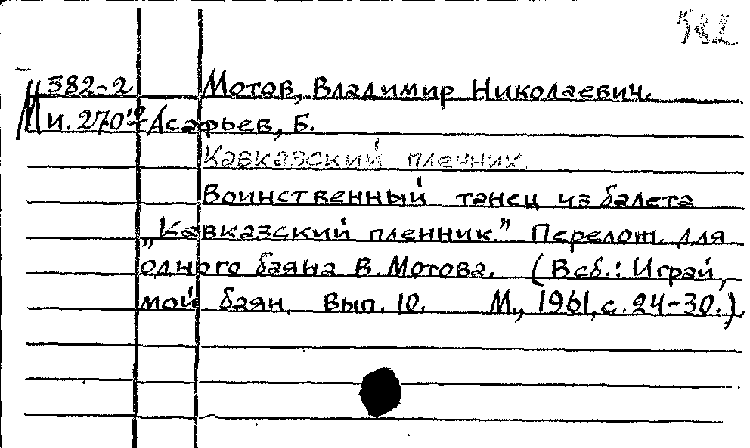 582
М 382-2 Мотов, Владимир Николаевич.
И. 270 Асафьев, Б.
Кавказский пленник.
Воинственный танец из балета
„Кавказский пленник." Перелож. для
одного баяна В. Мотова. (В сб.: Играй,
мой баян. Вып. 10. М., 1961, с. 24-30.)